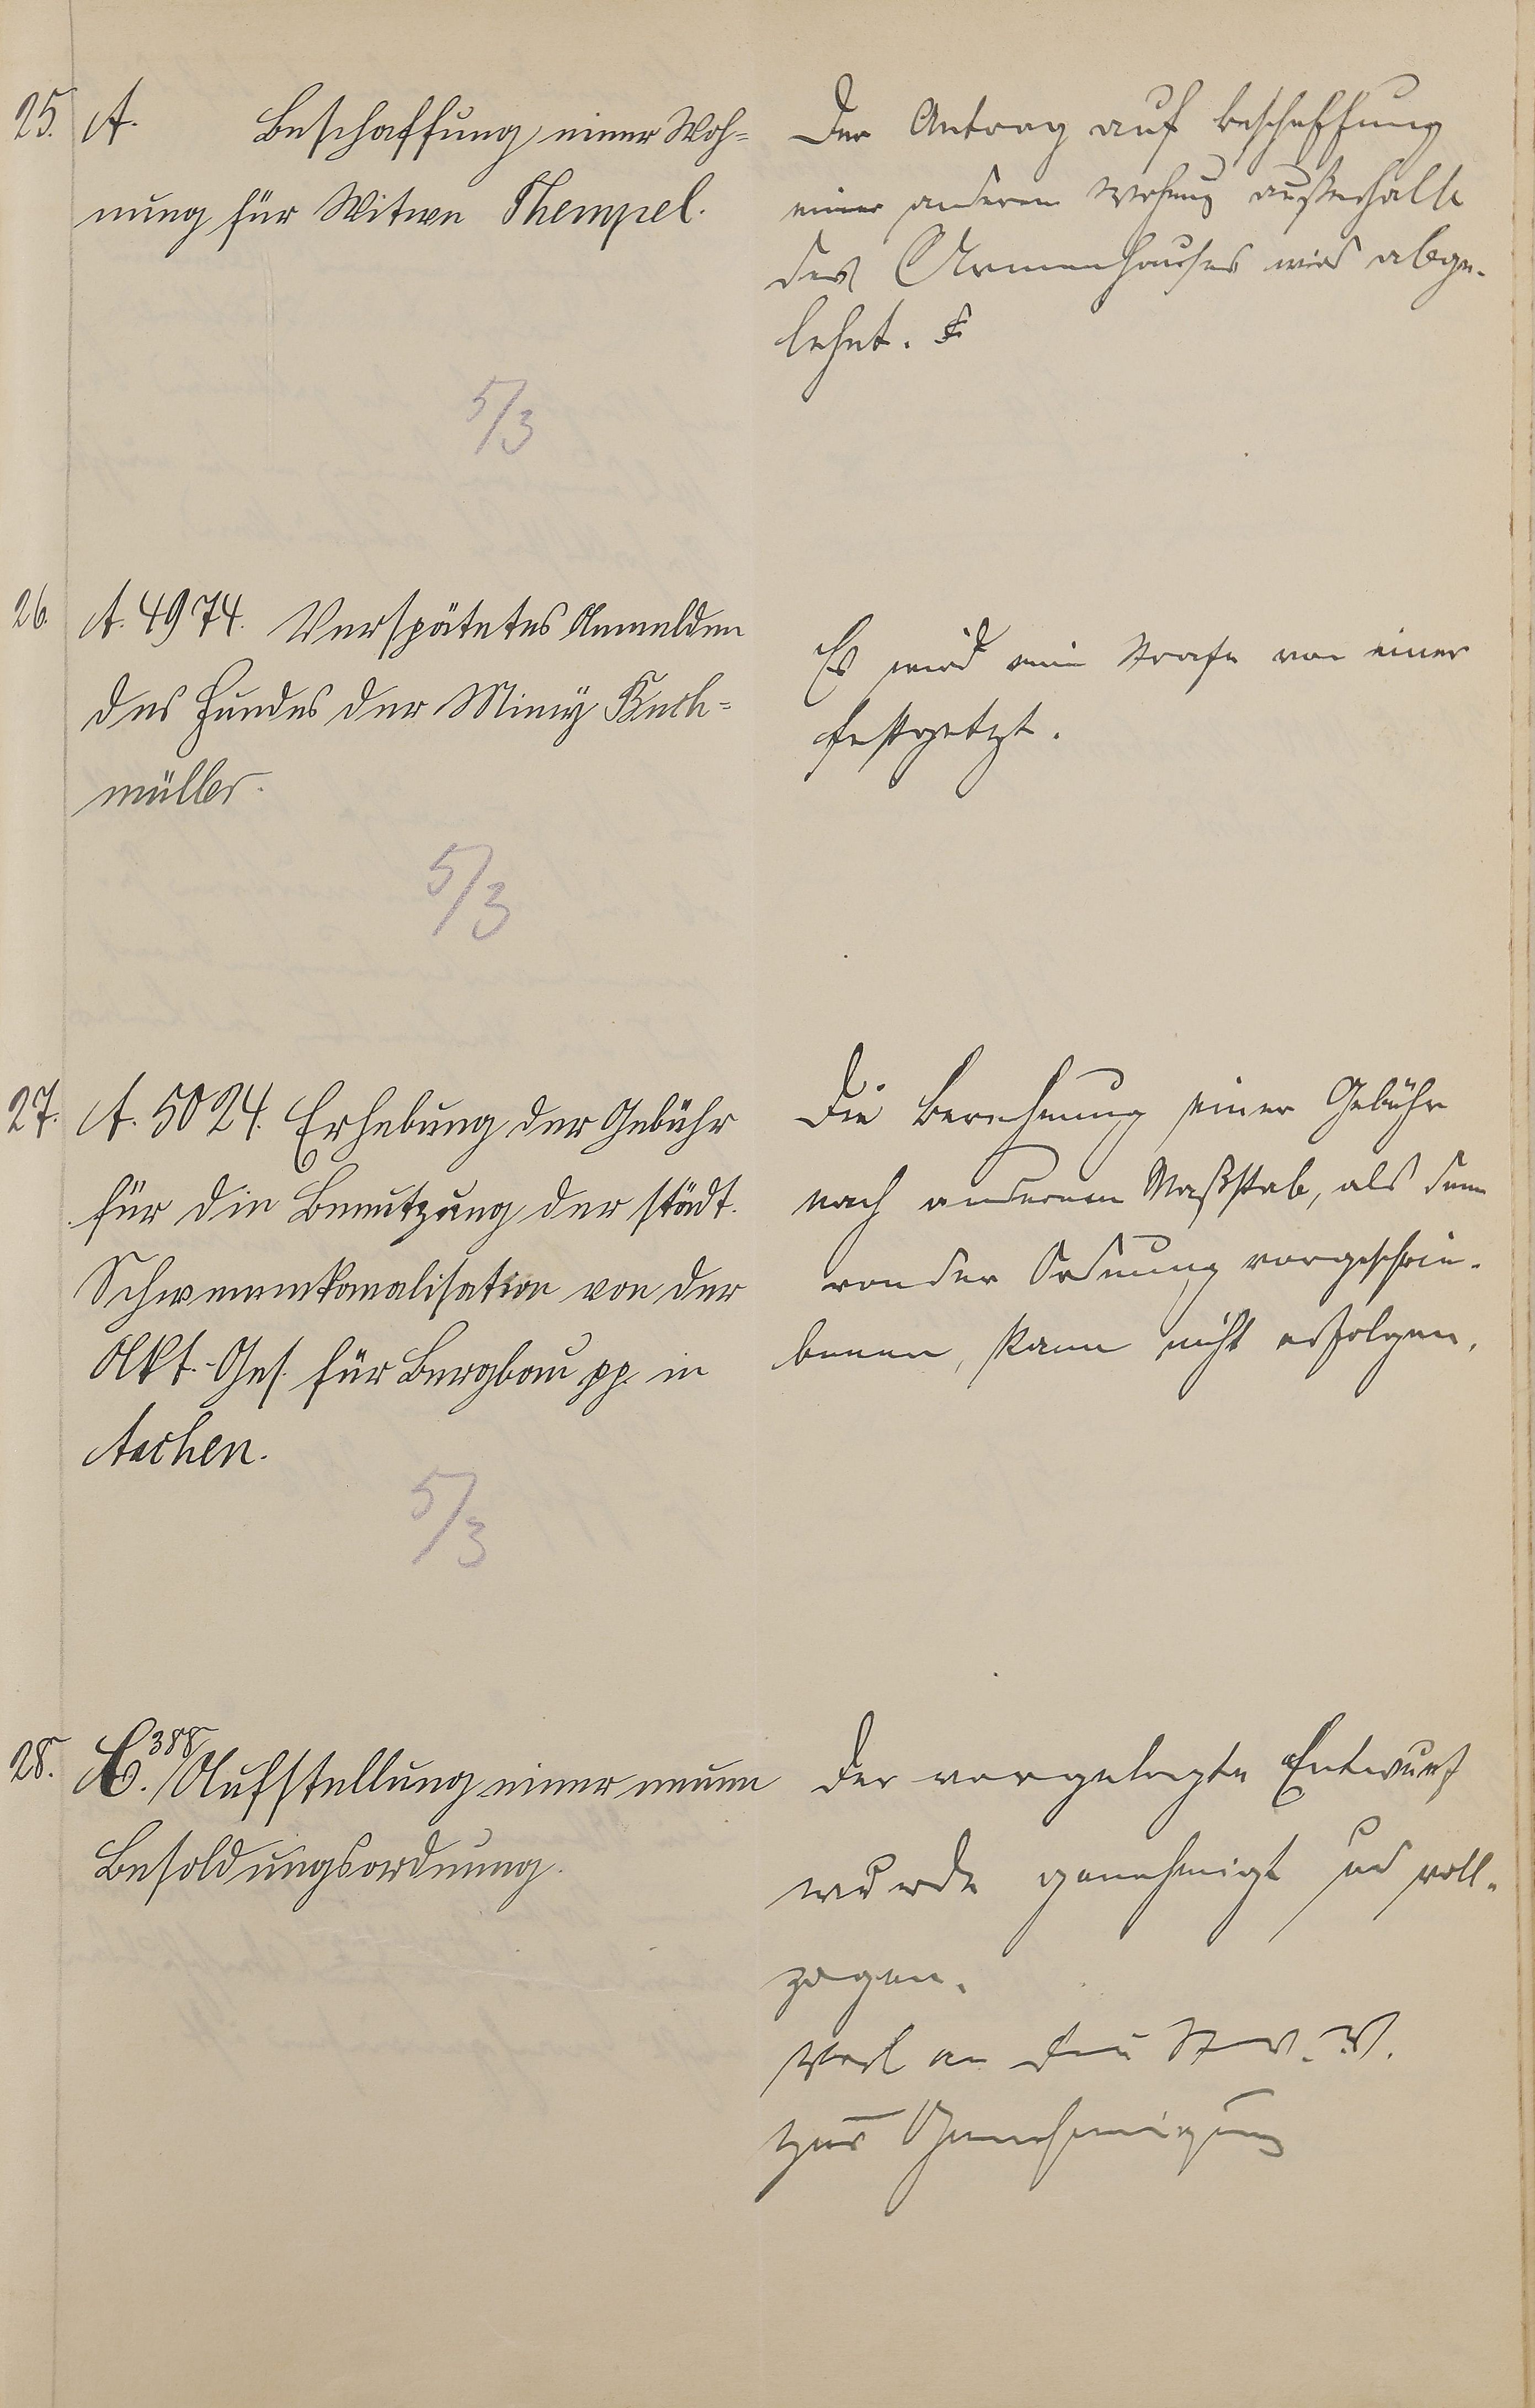 25. A. Beschaffung einer Woh=
nung für Witwe Thempel.
5/3
Der Antrag auf Beschaffung
einer anderen Wohnung außerhalb
des Armenhauses wird abge-
lehnt.
26. A. 4974. Verspätetes Anmelden
des Hundes der Minny Buch=
müller.
5/3
Es wird eine Strafe von einer
festgesetzt.
27. A. 5024. Erhebung der Gebühr
für die Benutzung der städt.
Schwemmkanalisation von der
Akt.-Ges. für Bergbau pp. in
Aachen.
5/3
Die Berechnung einer Gebühr
nach anderem Maßstab, als dem
von der Ordnung vorgeschrie-
benen, kann nicht erfolgen.
28. C. 388/ Aufstellung einer neuen
Besoldungsordnung.
Der vorgelegte Entwurf
wurde genehmigt und voll-
zogen.
Vorl an die St. V. V.
zur Genehmigung